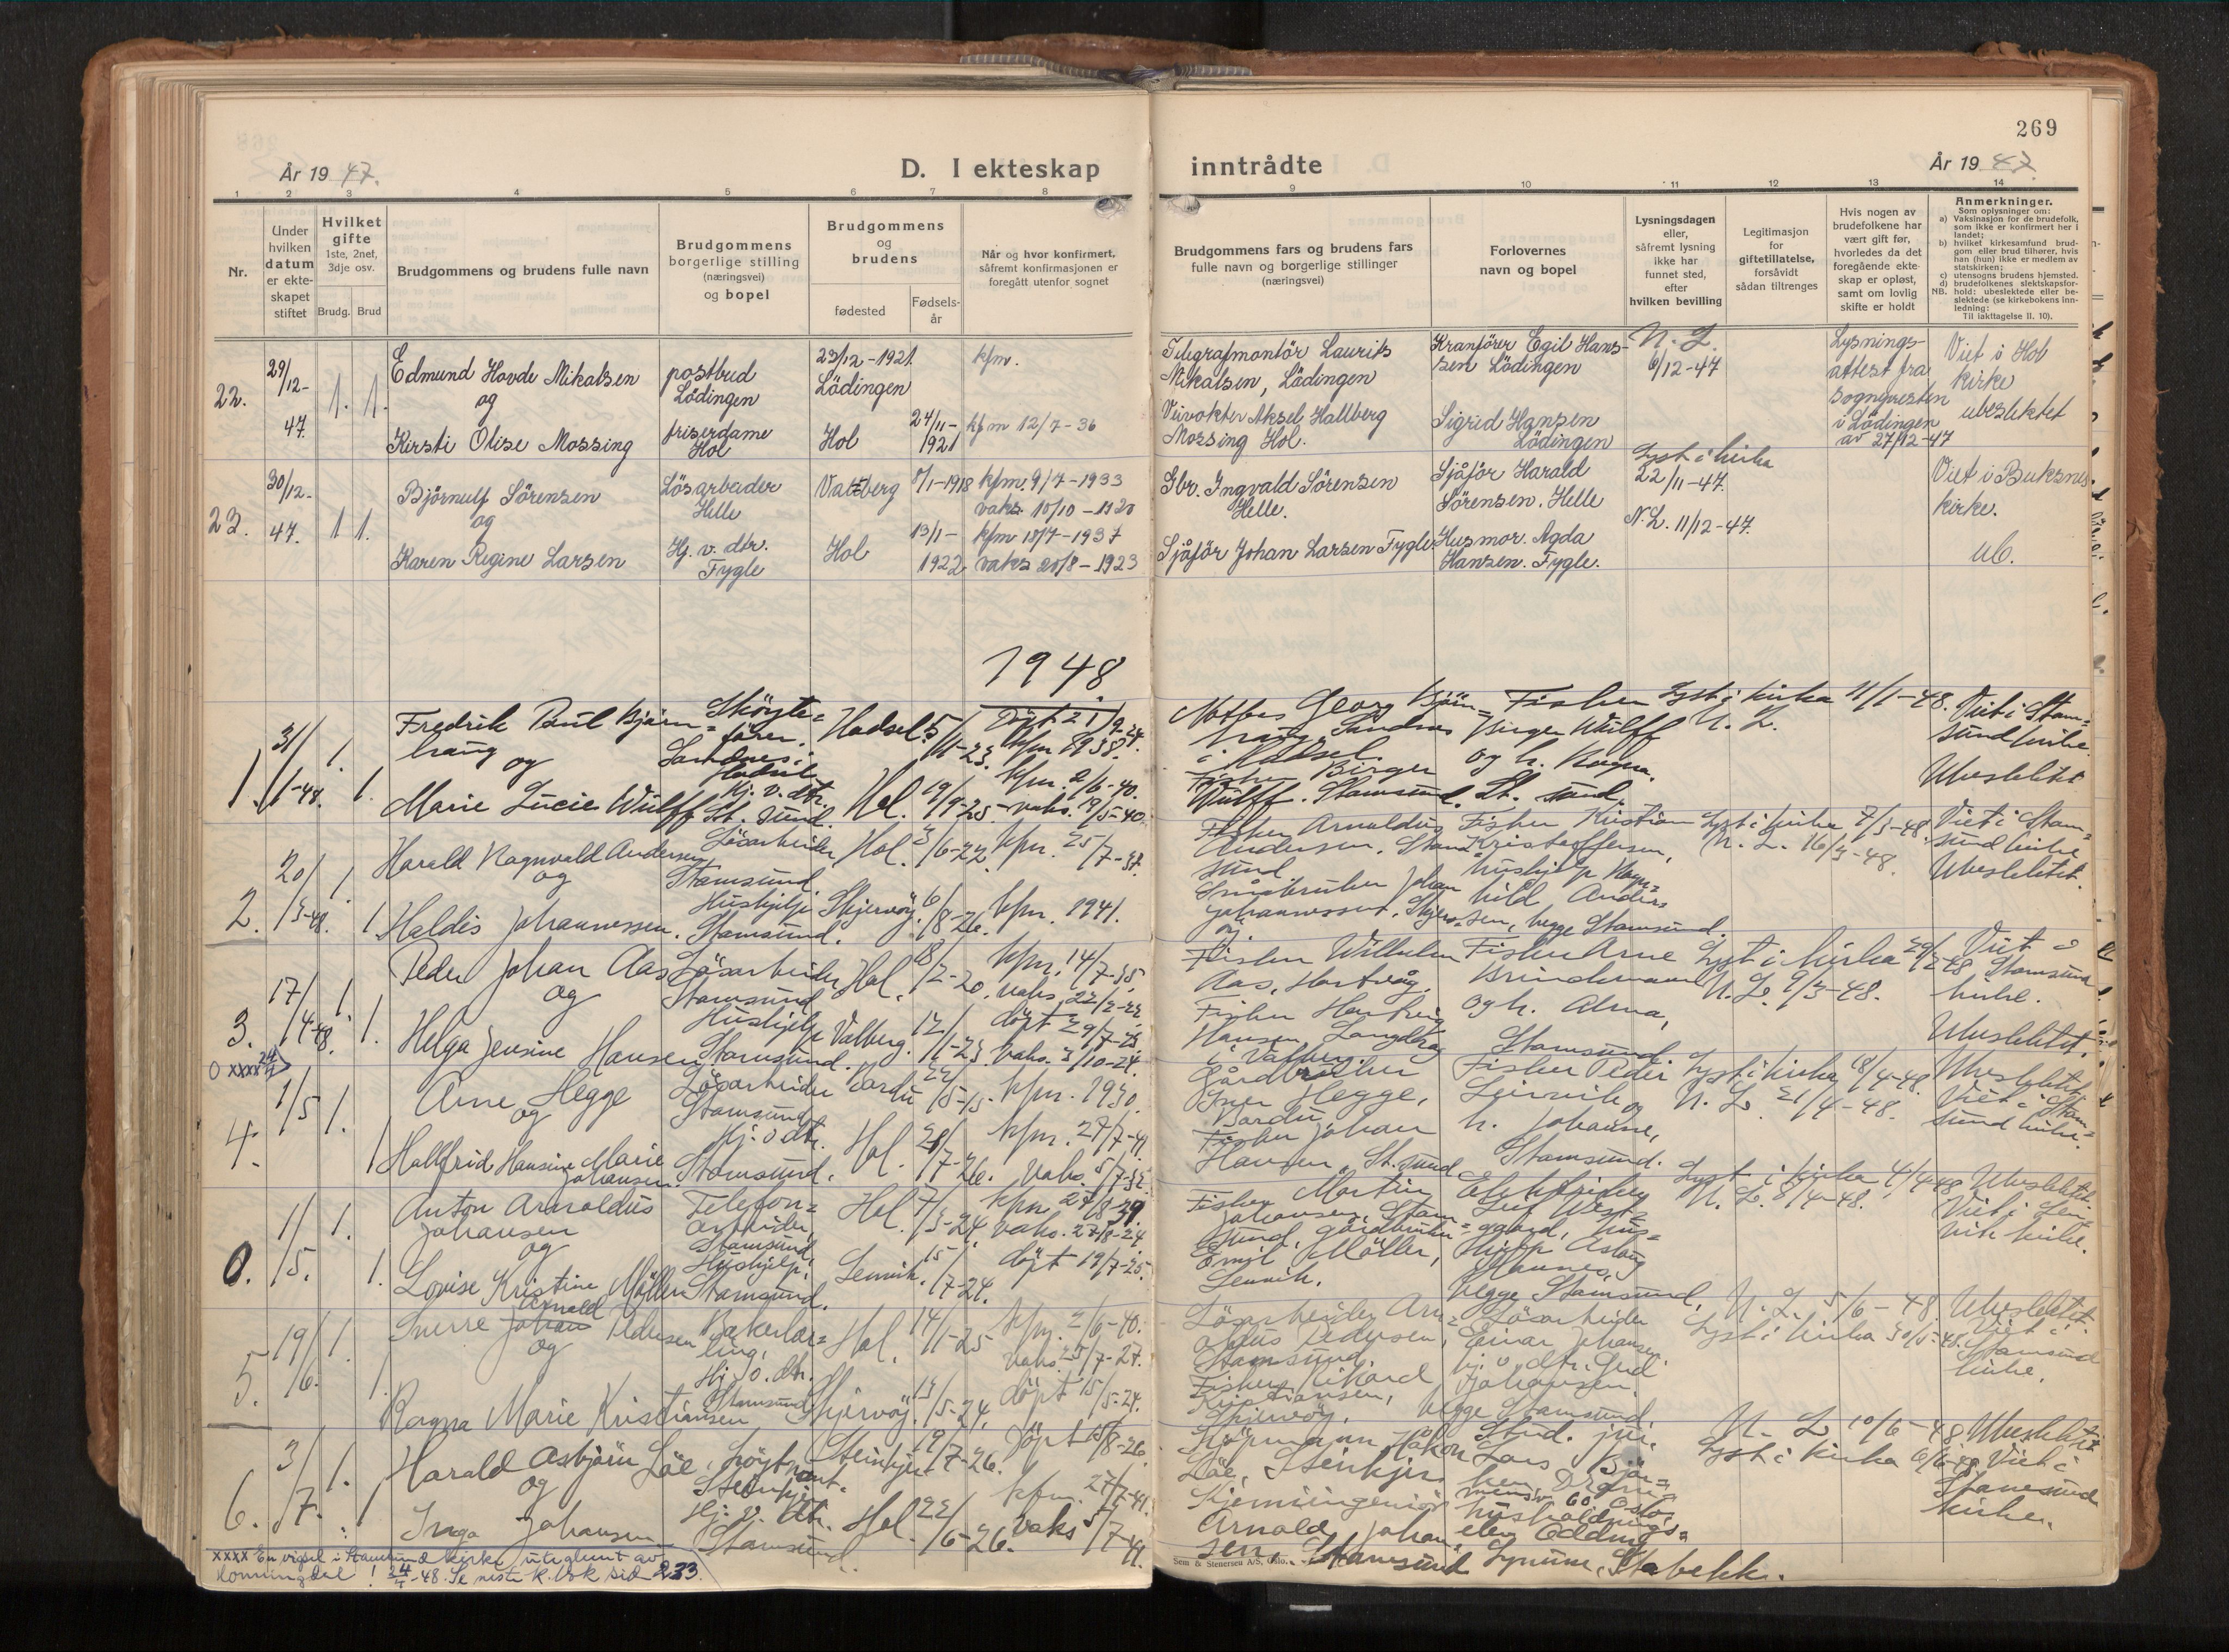 269
År 19 47.
D. I ekteskap
inntrådte
År 19 47.
1 2 3 4 5 6 7 8 9 10 11 12 13 14
Nr.
Under
hvilken
datum
er ekte-
skapet
stiftet
Hvilket
gifte
1ste, 2net,
3dje osv.
Brudg. Brud
Brudgommens og brudens fulle navn
Brudgommens
borgerlige stilling
(næringsvei)
og bopel
Brudgommens
og
brudens
fødested
Fødsels-
år
Når og hvor konfirmert,
såfremt konfirmasjonen er
foregått utenfor sognet
Brudgommens fars og brudens fars
fulle navn og borgerlige stillinger
(næringsvei)
Forlovernes
navn og bopel
Lysningsdagen
eller,
såfremt lysning
ikke har
funnet sted,
efter
hvilken bevilling
Legitimasjon
for
giftetillatelse,
forsåvidt
sådan tiltrenges
Hvis nogen av
brudefolkene har
vært gift før,
hvorledes da det
foregående ekte-
skap er opløst,
samt om lovlig
skifte er holdt
Anmerkninger.
Som oplysninger om:
a) Vaksinasjon for de brudefolk,
som ikke er konfirmert her i
landet;
b) hvilket kirkesamfund brud-
gom eller brud tilhører, hvis
han (hun) ikke er medlem av
statskirken;
c) utensogns brudens hjemsted.
d) brudefolkenes slektskapsfor-
NB. hold: ubeslektede eller be-
slektede (se kirkebokens inn-
ledning:
Til iakttagelse II. 10).
22.
29/12-
47.
1. 1.
Edmund Hovde Mikalsen
og
Kirsti Olise Mossing
postbud
Lödingen
friserdame
Hol
23/12-1921.
Lödingen
Hol
24/11-
1921
kfm.
kfm 12/7-36
Telegrafmontör Laurits
Mikalsen, Lödingen
Veivokter Aksel Hallberg
Mossing Hol.
Kranförer Egil Hans-
sen Lödingen
Sigrid Hansen
Lödingen
N. L.
6/12-47
Lysnings-
attest fra
sognepresten
i Lödingen
av 27/12-47
Viet i Hol
kirke
ubeslektet
23.
30/12-
47.
1 1.
Björnulf Sörensen
og
Karen Regine Larsen
Lösarbeider
Helle
Hj. v. dtr.
Fygle
Valberg
Hol
8/1-1918
13/1-
1922
kfm. 9/7-1933
vaks 10/10-1920
kfm 18/7-1937
vaks 20/8-1923
Gbr. Ingvald Sörensen
Helle.
Sjåför Johan Larsen Fygle.
Sjåför Harald
Sörensen. Helle
Husmor. Agda
Hansen. Fygle.
Lyst i kirka
22/11-47.
N. L. 11/12-47.
Viet i Buksnes
kirke.
ub.
1948
1.
31/1-48.
1. 1.
Fredrik Paul Bjørn=
haug
og
Marie Lucie Wulff
Sköyte=
förer.
Sandnes i
Hadsel
Hj. v. dtr.
St. sund.
Hadsel.
Hol.
19/9-25.
kfm. 1938.
kfm. 2/6-40.
vaks. 19/5-40.
Georg Björn=
haug, Sandnes
i Hadsel.
Fisker Birger
Wulff. Stamsund.
Fisker
Birger Wulff
og h. Ragna.
St. sund.
Lyst i kirka 11/1-48.
N. L.
Viet i Stam=
sund kirke.
Ubeslektet.
2.
20/3-48.
1. 1.
Harald Ragnvald Andersen
og
Haldis Johannessen.
Lösarbeider,
Stamsund
Hushjelp
Stamsund.
Hol.
Skjervöy.
6/8-26.
kfm. 25/7-37.
kfm. 1941.
Fisker Arnoldus
Andersen. Stam
sund
Småbruker Johan
Johannessen, Skjerv
öy.
Fisker Kristian
Kristoffersen,
hushjelp Ragn=
hild Anders
sen, begge Stamsund.
Lyst i kirke, 7/3-48.
N. L. 16/3-48.
Viet i Stam=
sund kirke.
Ubeslektet.
3.
17/4-48.
1. 1.
Peder Johan Aas
og
Helga Jensine Hansen
Lösarbeider
Stamsund
Hushjelp
Stamsund.
Hol.
Valberg.
18/2-20.
12/1-23.
kfm. 14/7-35.
vaks. 22/2-22
döpt 29/7-23
vaks. 3/10-24.
Fisker Wilhelm
Aas, Hartvåg.
Fisker Hartvig
Hansen Langdrag
i Valberg.
Fisker Arne
Brinchmann
og h. Alma,
Stamsund.
Lyst i kirka 29/2-48,
N. L. 9/3-48.
Viet i
Stamsund
kirke.
Ubeslektet.
0 xxxx 24/4
4.
1/5
1. 1
Arne Hegge
og
Hallfrid Hansine Marie
Johansen.
Lösarbeider
Stamsund
Hj. v. dtr.
Stamsund.
Bardu
Hol.
28/7-26.
kfm. 1930.
kfm. 27/7-41.
Vaks. 5/7-32.
Gårdbruker
Iver Hegge,
Bardu
Fisker Johan
Hansen, St. sund
Fisker Peder
Leirvik og
h. Johanne,
Stamsund.
Lyst i kirka 18/4-48.
N. L. 21/4-48.
Ubeslektet.
Viet i Stam=
sund kirke.
0.
1/5.
1. 1.
Anton Arnoldus
Johansen
og
Lovise Kristine Möller
Telefon=
arbeider,
Stamsund,
Hushjelp.
Stamsund.
Hol.
Lenvik.
7/3-24.
15/7-24.
vaks. 27/8-24
döpt 19/7-25.
Fisker Martin
Johansen, Stam=
sund, gårdbruker
Emil Möller,
Lenvik.
Leif West=
gaard, hus=
hjelp Aslaug
Hannes,
begge Stamsund,
Lyst i kirka 4/4-48,
N. L. 8/4-48.
Ubeslektet.
Viet i Len
vik kirke.
5.
19/6.
1. 1.
Sverre Johan Pedersen
Arnold
og
Ragna Marie Kristiansen
Bakerlær=
ling,
Hj. v. dtr.
Stamsund
Hol.
Skjervöy.
14/1-25
13/5-24.
kfm. 2/6-40.
Vaks. 25/7-27.
döpt 15/5-24.
Lösarbeider Arn=
oldus Pedersen,
Stamsund.
Fisker Rikard
Kristiansen,
Skjervöy.
Lösarbeider
Einar Johansen
hj. v. dtr. Gud
Johansen.
begge Stamsund.
N. L. 5/6-48.
Lyst i kirka 30/5-48.
Ubeslektet.
Viet i
Stamsund
kirke.
6.
3/7.
1. 1
Harald Asbjörn Låe,
og
Inga Johansen
löytnant.
Steinkjer
Hj. v. dtr.
Stamsund
Steinkjer
Hol
19/7-26.
22/6-26.
Döpt 15/8-26.
kfm. 27/7-41.
Vaks 5/7-41.
Kjöpmann Håkon
Låe, Steinkjer
Kjemiingeniör
Arnold Johan
sen, Stamsund
Stud. jur.
Lars Björ=
Oslo,
husholdnings=
elev Oddny
Lynum, Stabekk.
N. L. 10/6-48
Lyst i kirka 6/6-48
Ubeslektet
Viet i
Stamsund
kirke.
xxxx En vigsel i Stamsund kirke, uteglemt av
Honningdal! 24/4-48. Se neste k.bok side 233.
Sem & Stenersen A/S, Oslo.